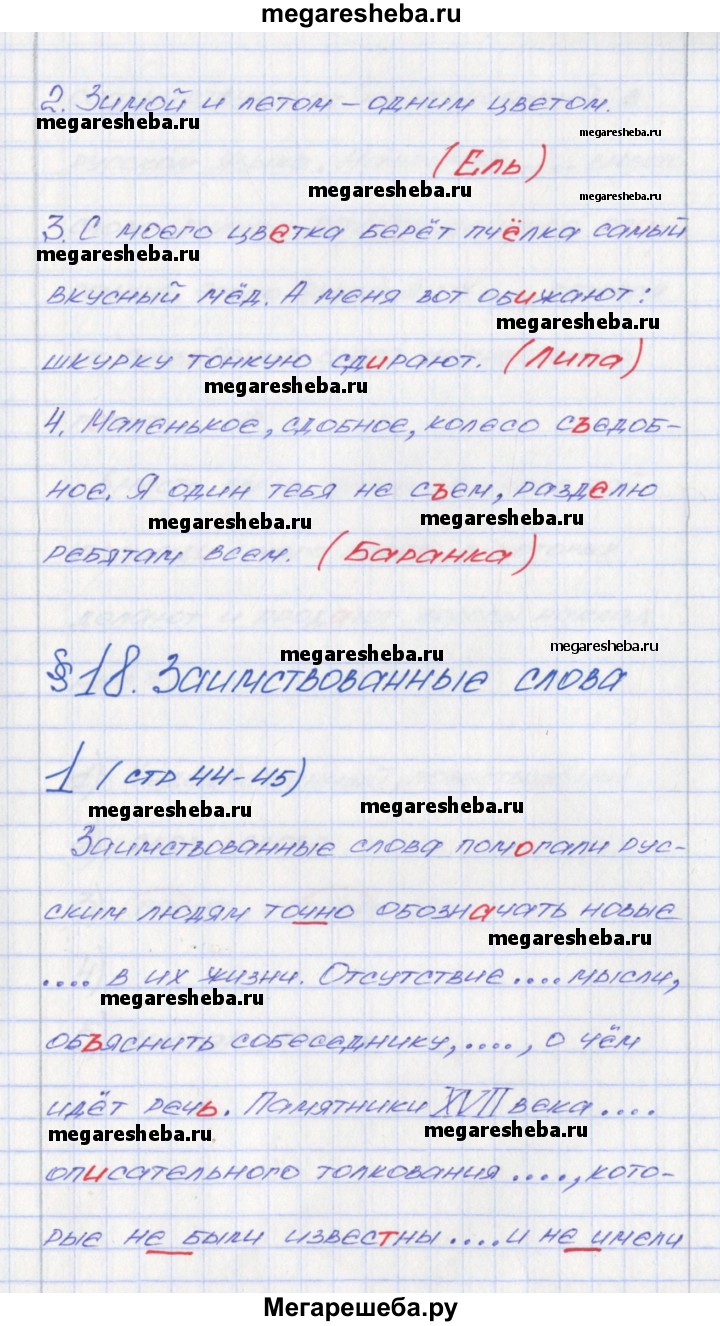 megaresheba.ru
2. Зимой и летом – одним цветом.
megaresheba.ru
megaresheba.ru
(Ель)
megaresheba.ru
megaresheba.ru
3. С моего цветка берёт пчёлка самый
megaresheba.ru
вкусный мёд. А меня вот обижают:
megaresheba.ru
шкурку тонкую сдирают. (Липа)
megaresheba.ru
4. Маленькое, сдобное, колесо съедоб-
ное. Я один тебя не съем, разделю
megaresheba.ru
megaresheba.ru
ребятам всем. (Баранка)
megaresheba.ru
megaresheba.ru
§18. Заимствованные слова
1 (стр 44-45)
megaresheba.ru
megaresheba.ru
Заимствованные слова помогали рус-
ским людям точно обозначать новые
megaresheba.ru
.... в их жизни. Отсутствие .... мысли,
megaresheba.ru
объяснить собеседнику, ...., о чём
идёт речь. Памятники XVII века ....
megaresheba.ru
megaresheba.ru
описательного толкования ...., кото-
рые не были известны .... и не имели
Мегарешеба.ру